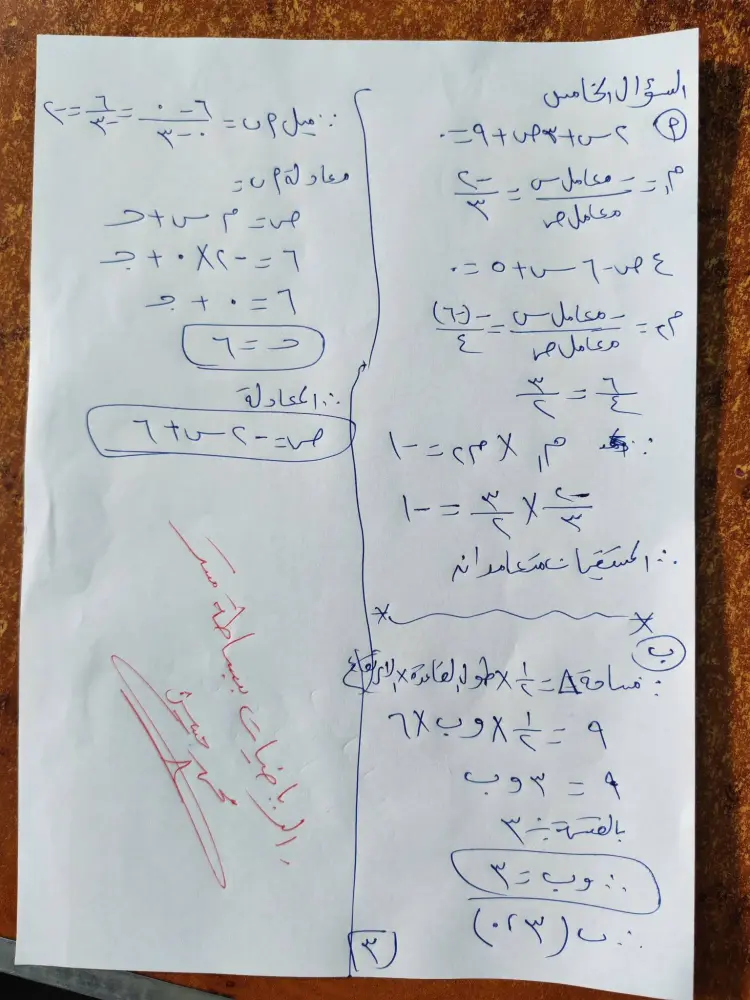 السؤال الخامس
(م) ٢س + ٣ص + ٩ = ٠
م١ = -معامل س / معامل ص = -٢ / ٣
٤ص - ٦س + ٥ = ٠
م٢ = -معامل س / معامل ص = -(-٦) / ٤
٦ / ٤ = ٣ / ٢
∴ م١ × م٢ = -١
-٢ / ٣ × ٣ / ٢ = -١
∴ المستقيمان متعامدان
(ب)
∵ مساحة Δ = ١ / ٢ × طول القاعدة × الارتفاع
٩ = ١ / ٢ × وب × ٦
٩ = ٣ وب
بالقسمة ÷ ٣
∴ وب = ٣
∴ ب (٣، ٠)
∴ ميل م ب = ٦ - ٠ / ٠ - ٣ = ٦ / -٣ = -٢
معادلة م ب =
ص = م س + حـ
٦ = -٢ × ٠ + جـ
٦ = ٠ + جـ
حـ = ٦
∴ المعادلة
ص = -٢س + ٦
الرياضيات ببساطة مستر
محمد
٣